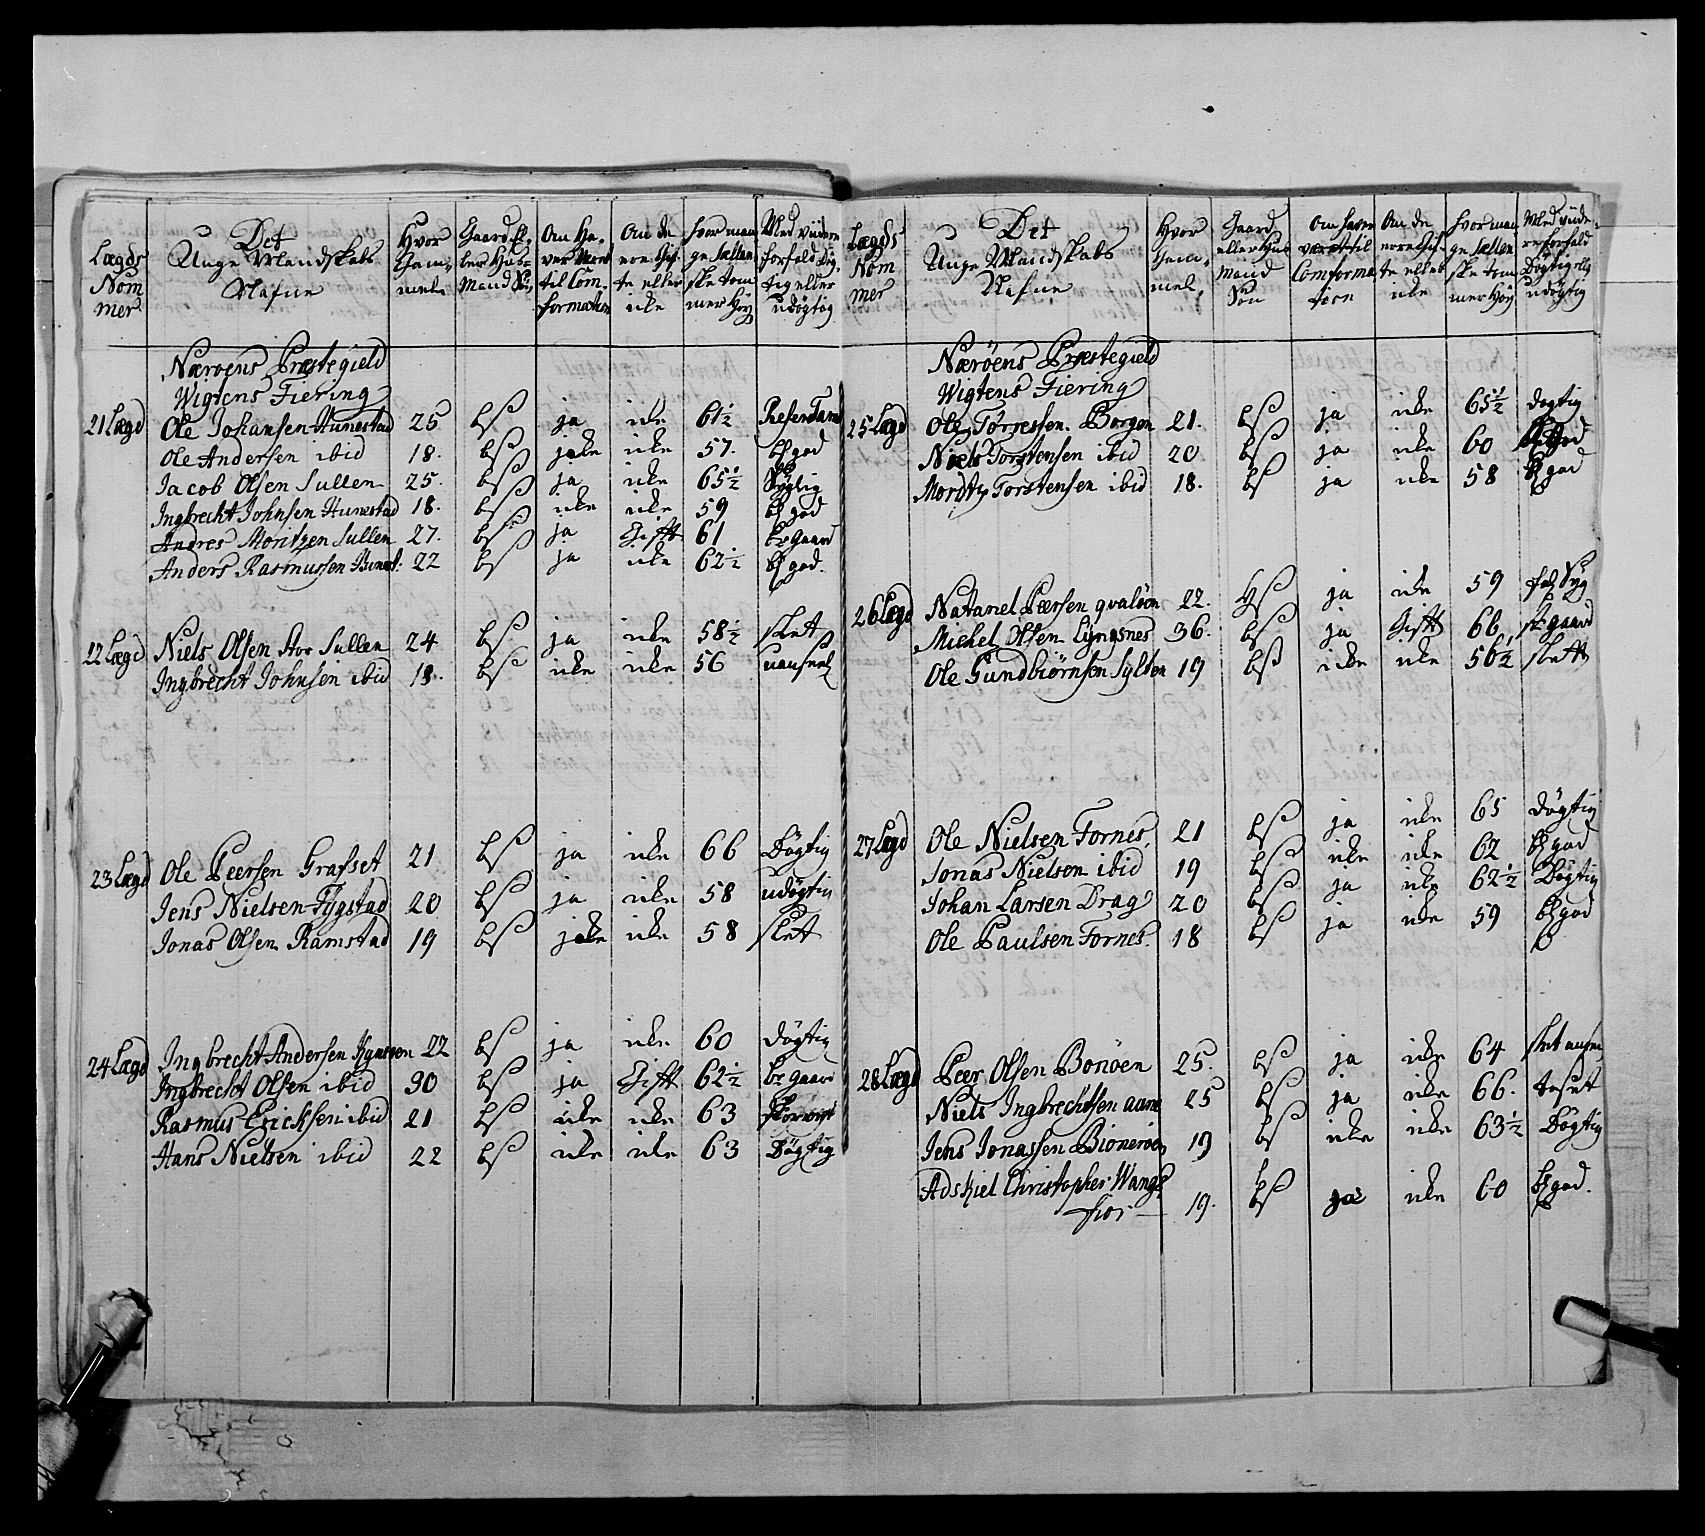 Lægds Nom mer | Det Unge Mandskabs Nafne | Hvor Gam mel | Gaard El ler Huus Mand Søn | Om Ha ver været til Com formation | Om de ere Gif te eller ikke | Hvor man ge Sællan ske tom mer Høy | Med viidere forfald Døg tig eller udøgtig
Nærøens Præstegield
Wigtens Fiering
21 Lægd Ole Johansen Hunestad 25 bS ja ikke 61½
Ole Andersen ibid 18. bS ikke ikke 57. god
Jacob Olsen Sullen 25. bS ja ikke 65½ Syglig
Ingbrecht Johnsen Hunestad 18. bS ikke ikke 59 god
Andres Moritzen Sullen 27. bS ja Gifft 61 br gaard
Anders Rasmussen 22 bS ja ikke 62½ god.
22 Lægd Niels Olsen Stor Sullen 24 bS ja ikke 58½ slet
Ingbrecht Johnsen ibid 18. bS ikke ikke 56
23 Lægd Ole Peersen Grafset 21 bS ja ikke 66 Døgtig
Jens Nielsen Fygstad 20 bS ja ikke 58 udøgtig
Jonas Olsen Ramstad 19 bS ikke ikke 58 slet
24 Lægd Ingbrecht Andersen 22 bS ja ikke 60 døgtig
Ingbrecht Olsen ibid 30 bS ja Gifft 62½ br gaard
Rasmus Ericksen ibid 21 bS ikke ikke 63
Hans Nielsen ibid 22 bS ikke ikke 63 Døgtig
Lægds Nom mer | Det Unge Mandskabs Nafne | Hvor Gam mel | Gaard eller Huus Mand Søn | Om haver været til Comforma tion | Om de erre Gif te eller ikke | Hvor man ge Sællan ske tom mer Høy | Med viide re forfald Døgtig ell udøgtig
Nærøens Præstegield
Wigtens Fiering
25 Lægd Ole Torresen Borgen 21. bS ja ikke 65½ døgtig
Niels Torstensen ibid 20 bS ja ikke 60 god
Mordtz Torstensen ibid 18. bS ja ikke 58 god
26 Lægd Natanel Peersen qvaløen 22. HS ja ikke 59 Syg
Michel Olsen Lyngsnes 36. bS ja Gifft 66 gaard
Ole Gundbiørnsen Sylten 19 bS ikke ikke 56½ slett
27 Lægd Ole Nielsen Fornes 21 bS ja ikke 65 døgtig
Jonas Nielsen ibid 19 bS ikke ikke 62 god
Johan Larsen Drag 20 bS ja ikke 62½ Døgtig
Ole Paulsen Fornes 18 bS ja ikke 59 god
28 Lægd Peer Olsen Borøen 25. bS ja ikke 64 slet
Niels Ingbrechtsen 25 bS ja ikke 66.
Jens Jonassen Bionerøen 19 bS ikke ikke 63½ Døgtig
Adskiel Christopher Wangs
fior 19. bS ja ikke 60 god.